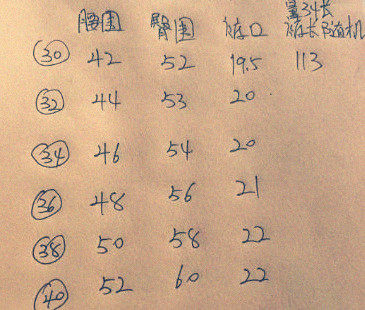 量34长
腰围 臀围 裤口 裤长随机
30 42 52 19.5 113
32 44 53 20
34 46 54 20
36 48 56 21
38 50 58 22
40 52 60 22